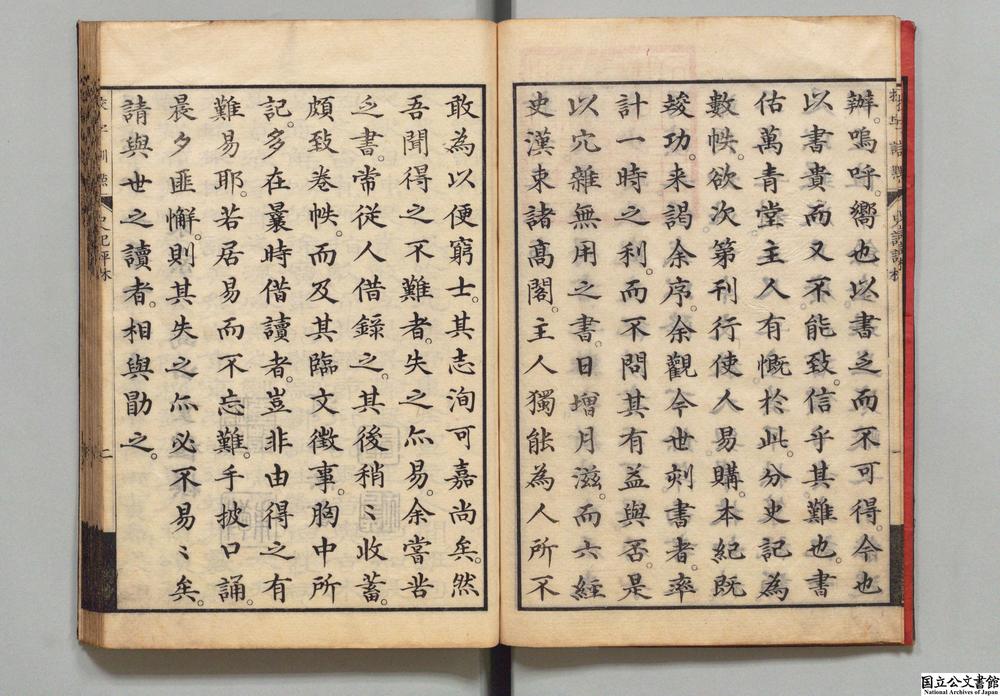 辦。嗚呼。嚮也以書乏而不可得。今也
以書貴而又不能致。信乎其難也。書
估萬青堂主人有慨於此。分史記為
數帙。欲次第刊行使人易購。本紀既
竣功。来謁余序。余觀今世刻書者。率
計一時之利。而不問其有益與否。是
以冗雜無用之書。日增月滋。而六經
史漢束諸高閣。主人獨能為人所不
敢為以便窮士。其志洵可嘉尚矣。然
吾聞得之不難者。失之亦易。余嘗苦
乏書。常從人借錄之。其後稍〻收蓄。
頗致卷帙。而及其臨文徵事。胸中所
記。多在曩時借讀者。豈非由得之有
難易耶。若居易而不忘難。手披口誦。
晨夕匪懈。則其失之亦必不易〻矣。
請與世之讀者。相與勖之。
史記評林
二
国立公文書館
National Archives of Japan